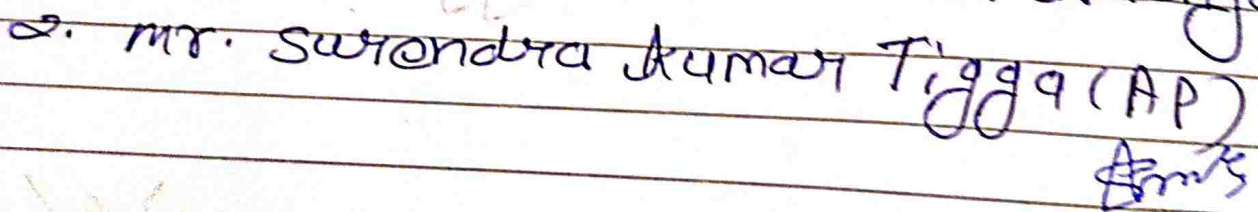 2. Mr. Surendra Kumar Tigga (AP)